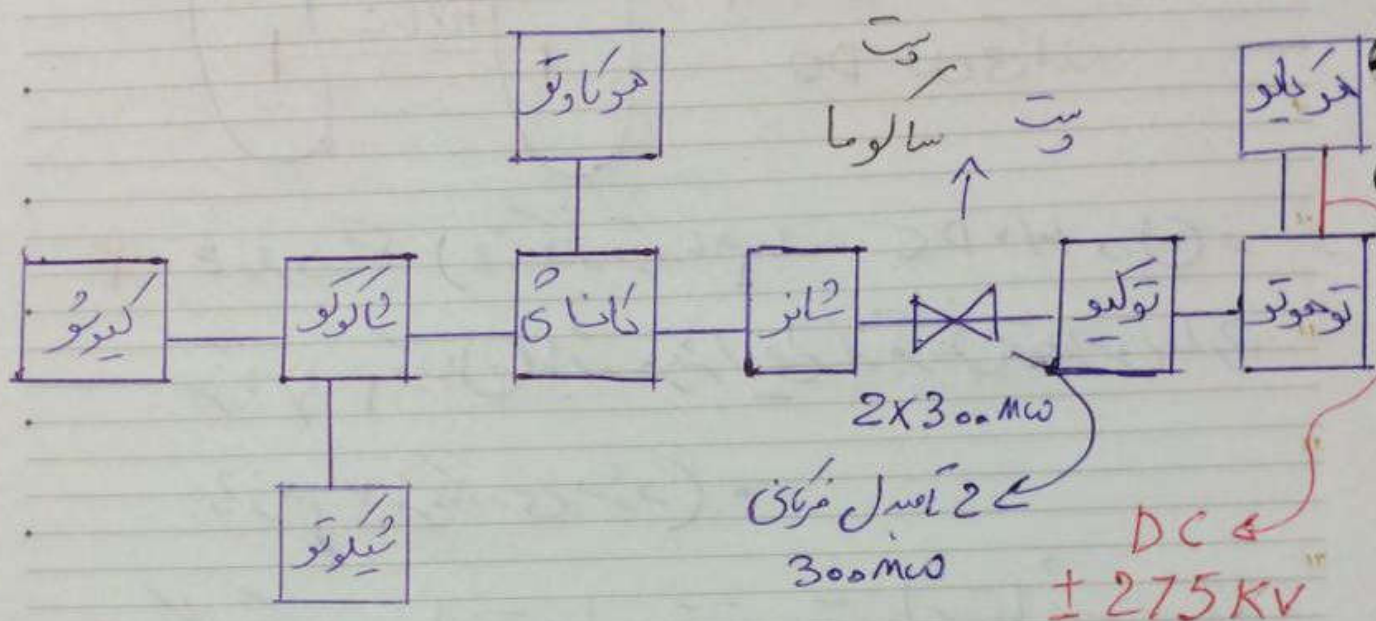 هوکاوتو
پست
سالوما
پست
هوکایدو
کیوشو
شاکوکو
کانسای
شانز
توکیو
توهوتو
2X300MW
شیکوتو
2 تا مبدل فرکانس
300MW
DC
± 275 KV